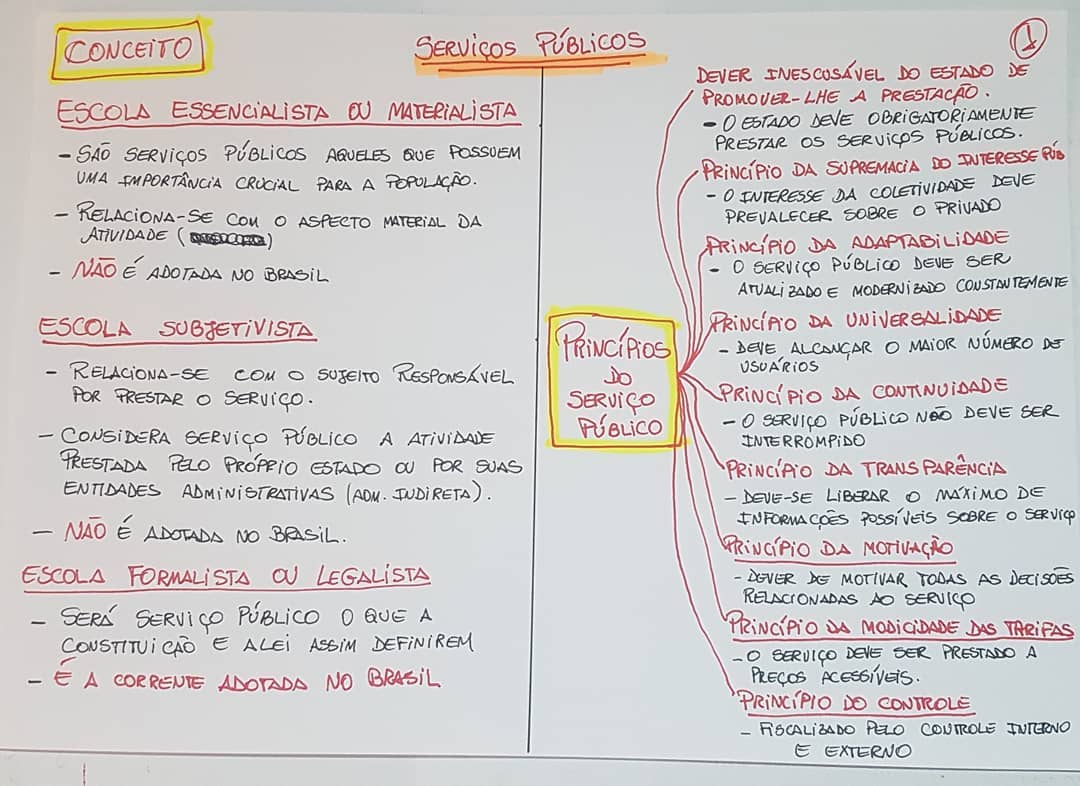 SERVIÇOS PÚBLICOS
1
CONCEITO
ESCOLA ESSENCIALISTA OU MATERIALISTA
- SÃO SERVIÇOS PÚBLICOS AQUELES QUE POSSUEM
UMA IMPORTÂNCIA CRUCIAL PARA A POPULAÇÃO.
- RELACIONA-SE COM O ASPECTO MATERIAL DA
ATIVIDADE ( )
- NÃO É ADOTADA NO BRASIL
ESCOLA SUBJETIVISTA
- RELACIONA-SE COM O SUJEITO RESPONSÁVEL
POR PRESTAR O SERVIÇO.
- CONSIDERA SERVIÇO PÚBLICO A ATIVIDADE
PRESTADA PELO PRÓPRIO ESTADO OU POR SUAS
ENTIDADES ADMINISTRATIVAS (ADM. INDIRETA).
- NÃO É ADOTADA NO BRASIL.
ESCOLA FORMALISTA OU LEGALISTA
- SERÁ SERVIÇO PÚBLICO O QUE A
CONSTITUIÇÃO E A LEI ASSIM DEFINIREM
- É A CORRENTE ADOTADA NO BRASIL
PRINCÍPIOS
DO
SERVIÇO
PÚBLICO
DEVER INESCUSÁVEL DO ESTADO DE
PROMOVER-LHE A PRESTAÇÃO.
- O ESTADO DEVE OBRIGATORIAMENTE
PRESTAR OS SERVIÇOS PÚBLICOS.
PRINCÍPIO DA SUPREMACIA DO INTERESSE PÚB
- O INTERESSE DA COLETIVIDADE DEVE
PREVALECER SOBRE O PRIVADO
PRINCÍPIO DA ADAPTABILIDADE
- O SERVIÇO PÚBLICO DEVE SER
ATUALIZADO E MODERNIZADO CONSTANTEMENTE
PRINCÍPIO DA UNIVERSALIDADE
- DEVE ALCANÇAR O MAIOR NÚMERO DE
USUÁRIOS
PRINCÍPIO DA CONTINUIDADE
- O SERVIÇO PÚBLICO NÃO DEVE SER
INTERROMPIDO
PRINCÍPIO DA TRANSPARÊNCIA
- DEVE-SE LIBERAR O MÁXIMO DE
INFORMAÇÕES POSSÍVEIS SOBRE O SERVIÇO
PRINCÍPIO DA MOTIVAÇÃO
- DEVER DE MOTIVAR TODAS AS DECISÕES
RELACIONADAS AO SERVIÇO
PRINCÍPIO DA MODICIDADE DAS TARIFAS
- O SERVIÇO DEVE SER PRESTADO A
PREÇOS ACESSÍVEIS.
PRINCÍPIO DO CONTROLE
- FISCALIZADO PELO CONTROLE INTERNO
E EXTERNO